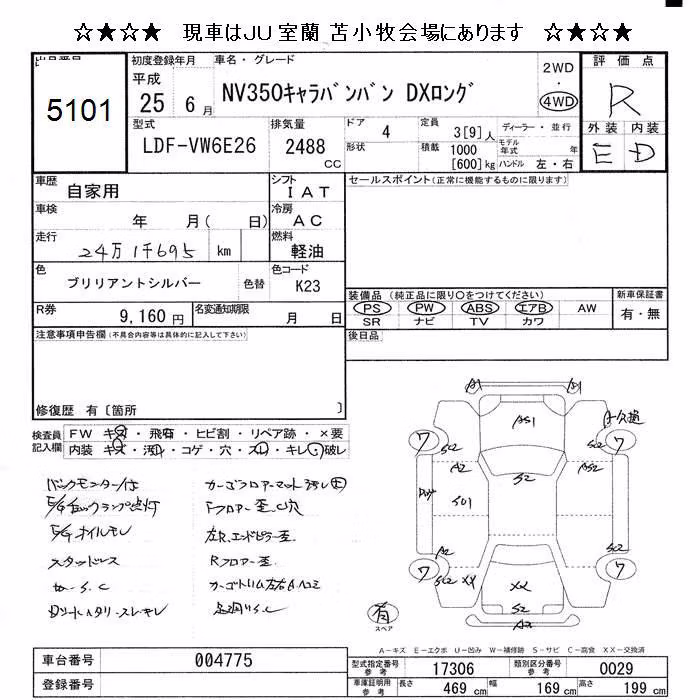 ☆★☆★　現車はJU室蘭 苫小牧会場にあります　☆★☆★
5101
初度登録年月
平成
25 6月
車名・グレード
NV350キャラバンバン DXロング
2WD
・
4WD
評価点
R
外装 内装
E D
型式
LDF-VW6E26
排気量
2488
CC
ドア
4
形状
定員
3[9]人
積載
1000
[600]kg
ディーラー・並行
モデル年式 年
ハンドル 左・右
車歴
自家用
シフト
IAT
車検
年 月( 日)
冷房
AC
走行
24万1千695 km
燃料
軽油
色
ブリリアントシルバー
色替
色コード
K23
R券
9,160円
名変通知期限
月 日
セールスポイント(正常に機能するものに限ります)
装備品 (純正品に限り〇をつけてください)
PS PW ABS エアB AW
SR ナビ TV カワ
新車保証書
有・無
後日品
注意事項申告欄(不具合内容等は具体的に記入して下さい)
修復歴 有〔箇所 〕
検査員記入欄
FW キズ・飛石・ヒビ割・リペア跡・×要
内装 キズ・汚れ・コゲ・穴・スレ・キレ・破レ
バックモニター付
E/gチェックランプ点灯
E/gオイルモレ
スタッドレス
カーゴフロアーマット汚レ大
Fフロアー歪、C穴
左R.エンドピラー歪
Rフロアー歪
A1
A1
AS1
ワ
ワ
S2
S2
S2
A2
AS2
S01
A2
S2
ワ
ワ
S2
XX
XX
S2
A2
有
スペア
A－キズ E－エクボ U－凹み W－補修跡 S－サビ C－腐食 XX－交換済
車台番号
004775
登録番号
型式指定番号
参考
17306
類別区分番号
参考
0029
車庫証明用
参考
長さ
469 cm
幅
169 cm
高さ
199 cm